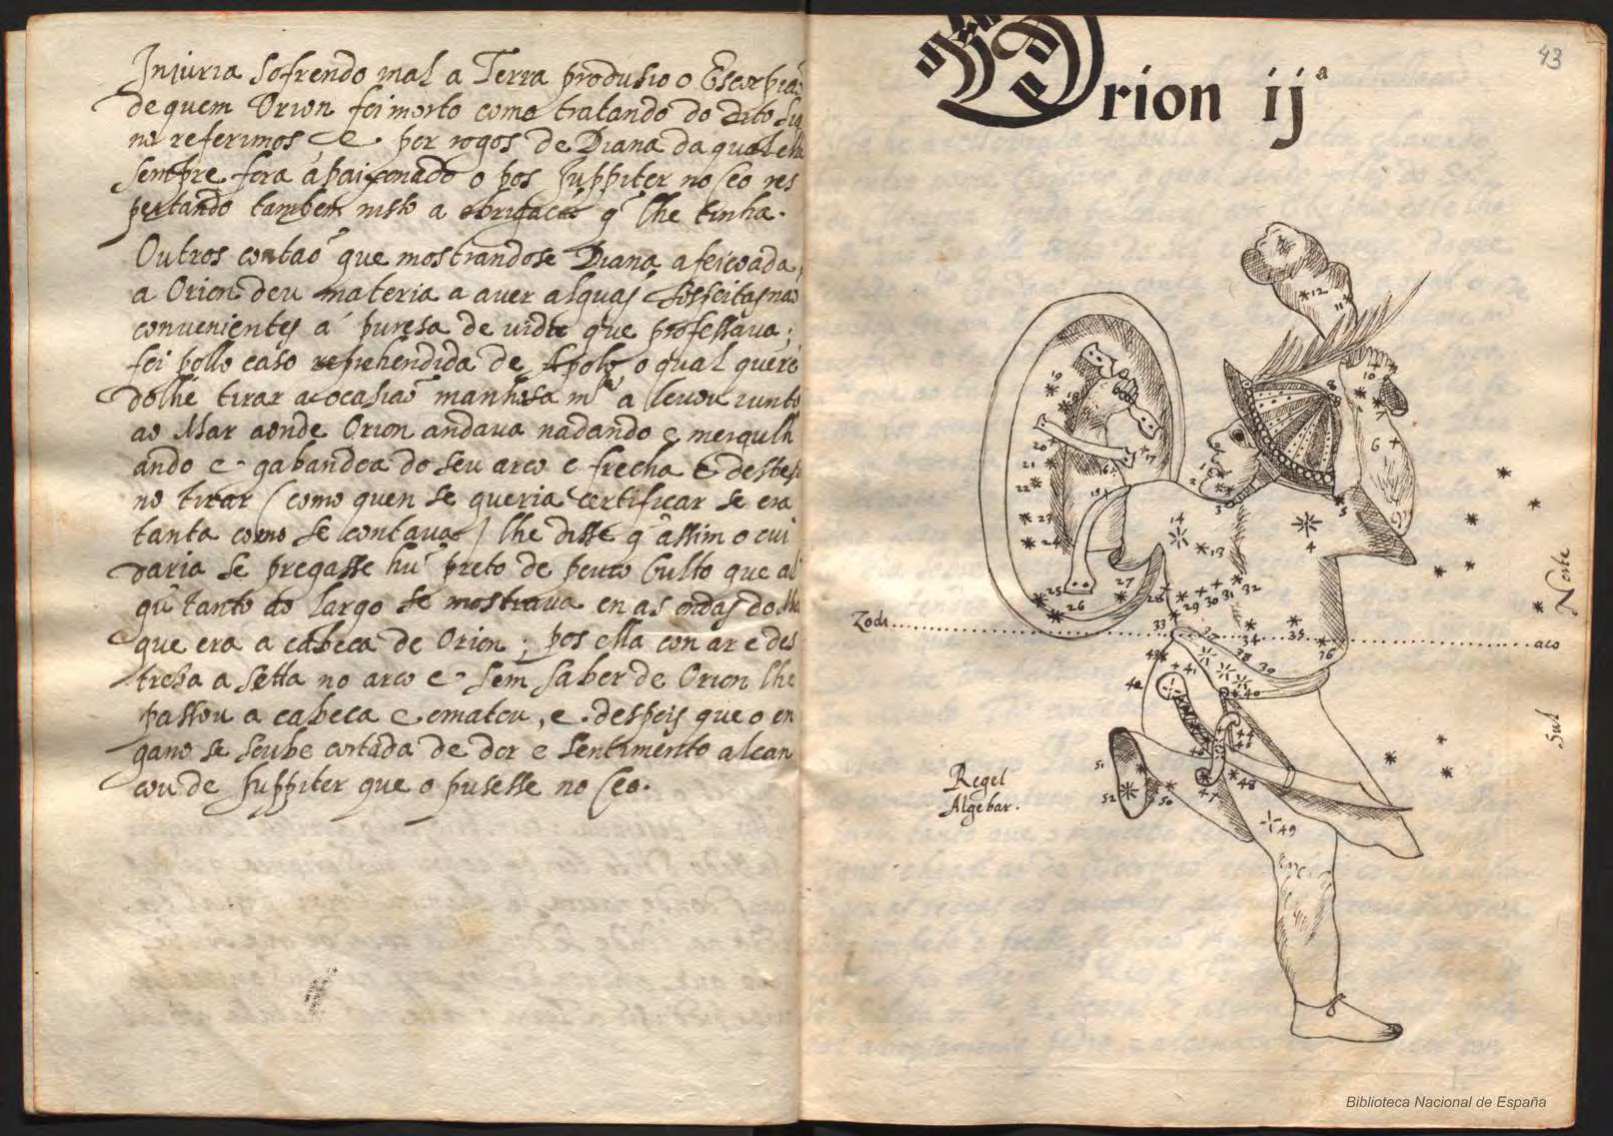 Injuria sofrendo mal a Terra produsio o Escorpiaõ
de quem Orion foi morto como tratando do dito Sig
no referimos e por rogos de Diana da qual elle
sempre fora apaixonado o pos Juppiter no Ceo res
peitando tambem nisto a obrigacaõ q̃ lhe tinha.
Outros contaõ que mostrandose Diana afeicoada
a Orion deu materia a aver alguas sospeitas naõ
convenientes á puresa de vida que professava;
foi pollo caso reprehendida de Apolo o qual queré
dolhe tirar a ocasiaõ manhosa m.te a levou iunto
ao Mar aonde Orion andava nadando e mergulh
ando e gabandoa do seu arco e frecha e destesa
no tirar (como quen se queria certificar se era
tanta como se contava) lhe disse q̃ assim o cui
daria se pregasse hũ preto de pouco bulto que al
gũ tanto ao largo se mostrava en as ondas do Mar
que era a cabeca de Orion; pos ella con ar e des
tresa a setta no arco e sem saber de Orion lhe
passou a cabeca e o matou, e despois que o en
gano se soube cortada de dor e sentimento alcan
cou de Juppiter que o pusesse no Ceo.
43
Orion ijª
12
11
10
8
19
18
6
20
17
21
16
22
15
2
1
3
5
9
23
14
4
24
13
Norte
25
27
26
28
29 30 31 32
Zodi
33
34
35
36
aco
37
38
39
41
42
40
Sul
44
51
Regel
48
52
50
47
Algebar.
49
Biblioteca Nacional de España